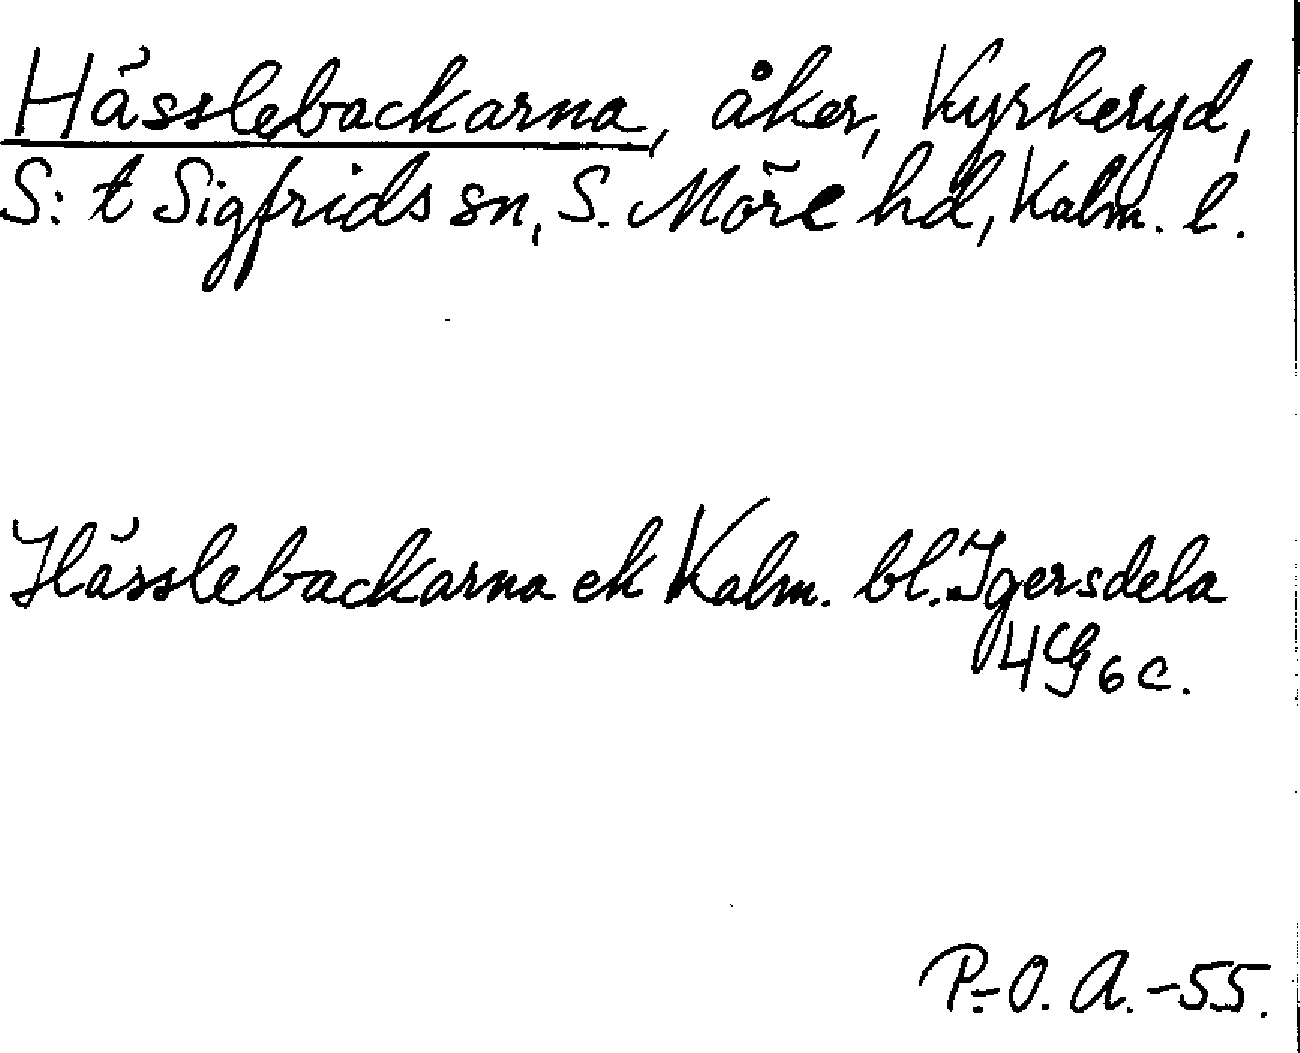 Hässlebackarna, åker, Kyrkeryd,
S:t Sigfrids sn, S. Möre hd, Kalm. l.
Hässlebackarna ek Kalm. bl. Igersdela
4G6c.
P.-O. A. -55.